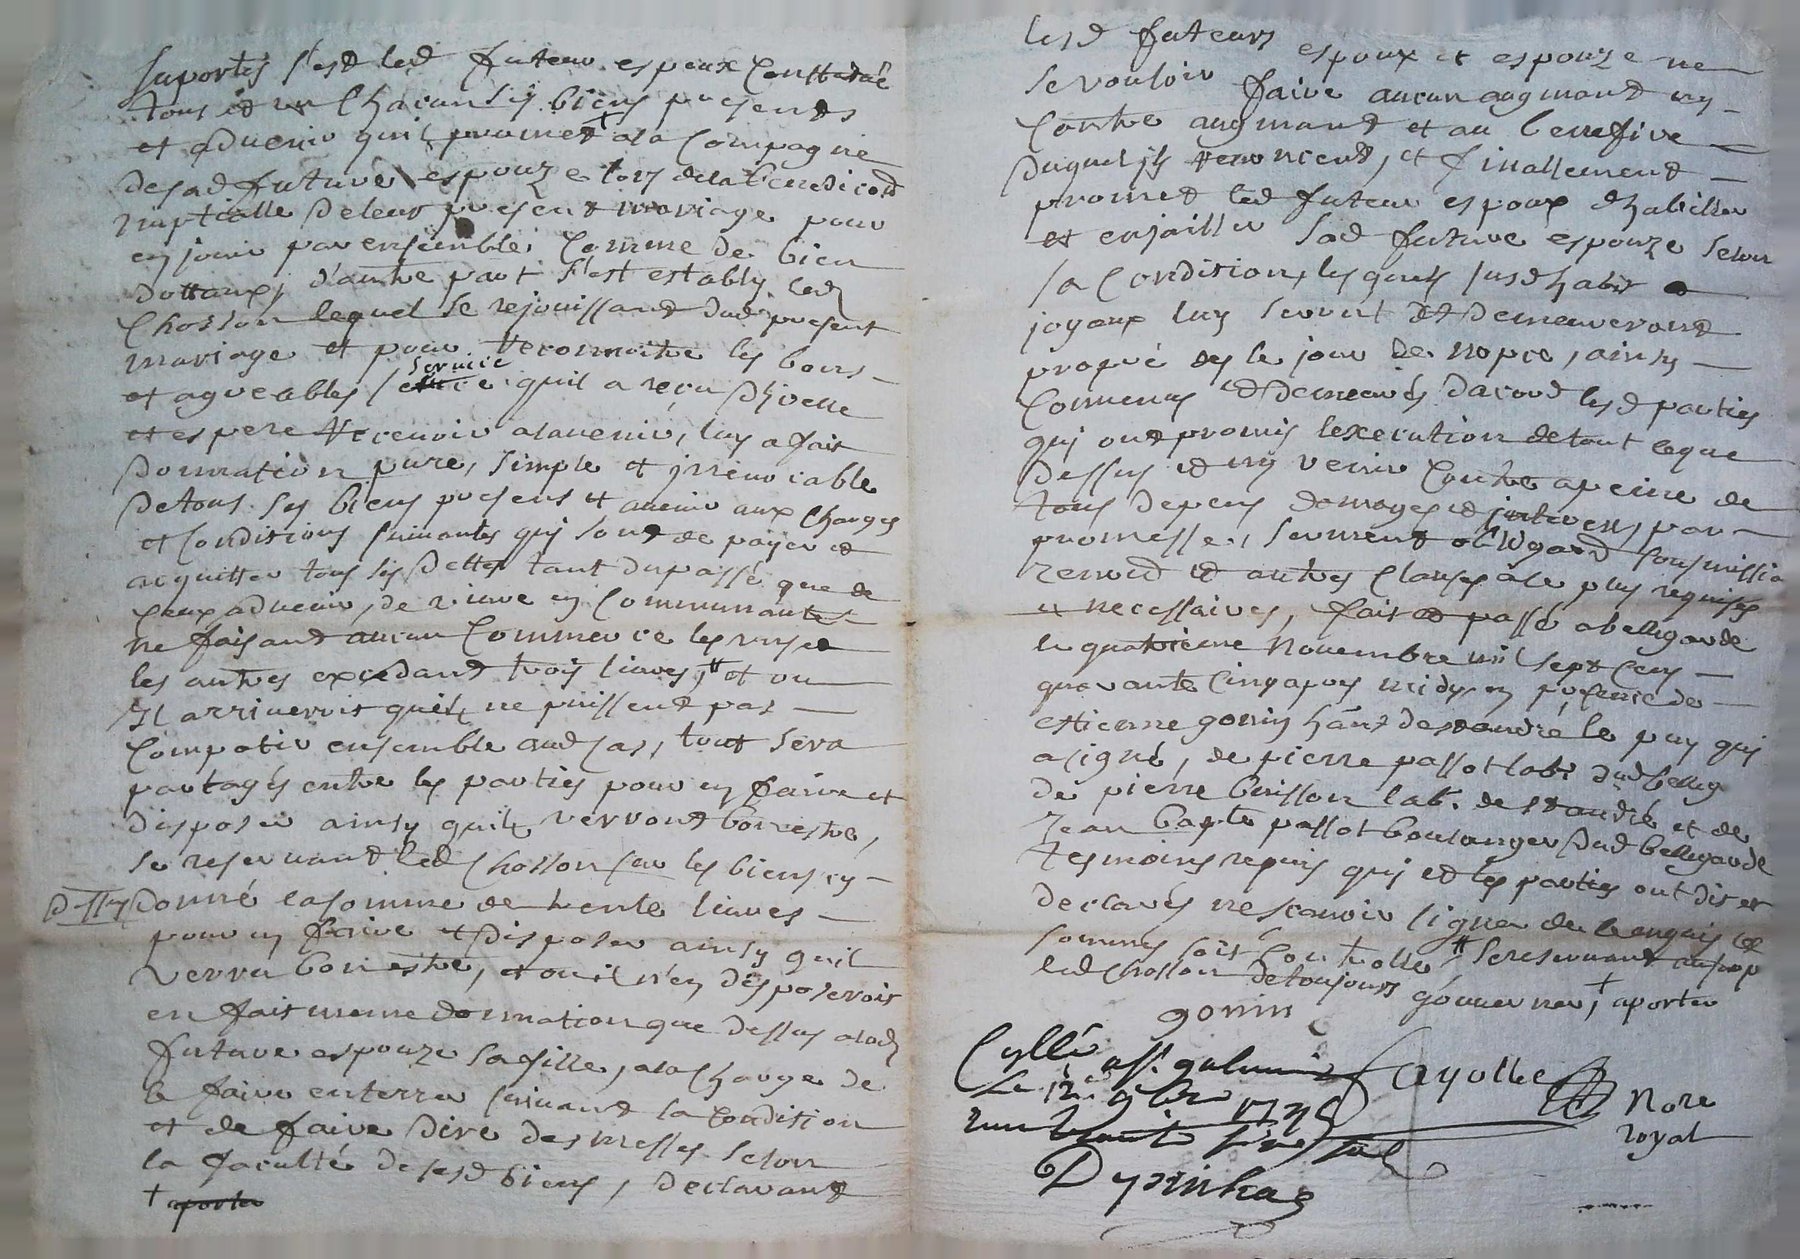 suportés s'est led futeur espoux constitué
tous et un chacun ses biens presents
et advenir quil promet + a la compagnie
desad future espouze lors de la benediction
nuptialle de leur present mariage pour
en jouir par ensemble comme de bien
dottaux, d'autre part s'est estably led
Chosson lequel se rejouissant dud present
mariage et pour reconnoitre les bons
et agreables service quil a reçu dhicelle
et espere recevoir a lavenir, luy a fait
donnation pure, simple et jrrevocable
de tous ses biens presens et avenir aux charges
et conditions suivantes qui sont de payer et
acquitter tous ses dettes tant du passé que de
ceux advenir, de vivre en communauté
ne faisant aucun commerce les uns et
les autres excedant trois livres, # et ou
Il arriveroit quils ne puissent pas
compatir ensemble aud cas, tout sera
partagés entre les parties pour en faire et
disposer ainsy quils verront bon estre,
se reservant led Chosson sur les biens cy
donné la somme de trente livres
pour en faire et disposer ainsy quil
verra bon estre, et ou il n'en disposeroit
en fait meme donnation que dessus a lad
future espouze sa fille, a la charge de
le faire enterrer suivant sa condition
et de faire dire des messes selon
la faculté de sesd biens, declarant
+ aporter
lesd futeurs espoux et espouze ne
se vouloir faire aucun augmant ny
contre augmant et au benefice
duquel ils renoncent, et finallement
promet led futeur espoux dhabiller
et enjailler sad future espouze selon
sa condition, lesquels susd habit
joyaux luy seront et demeureront
propre des le jour de nopce, ainsy
convenus et demeurés dacord lesd parties
qui ont promis lexecution de tout ce que
dessus et ny venir contre a peine de
tous depens domages et jnterests, par
promesse, serment obligaõn sousmission
renond et autres clauses a ce plus requises
et necessaires, fait et passé a bellegarde
le quatrieme novembre mil sept cens
quarante cinq apres midy en presence de
estienne gonin hãnt de st andré le puy qui
a signé, de pierre passot labr dud belleg
de pierre buisson labr de st andré et de
Jean bapte passot boulanger dud bellegarde
tesmoins requis qui et les parties ont dit et
declarés ne scavoir signer de ce enquis et
sommés soit controllé # se reservant
led Chosson de toujours gouverner, + aporter
gonin
Fayolle
Nore
royal